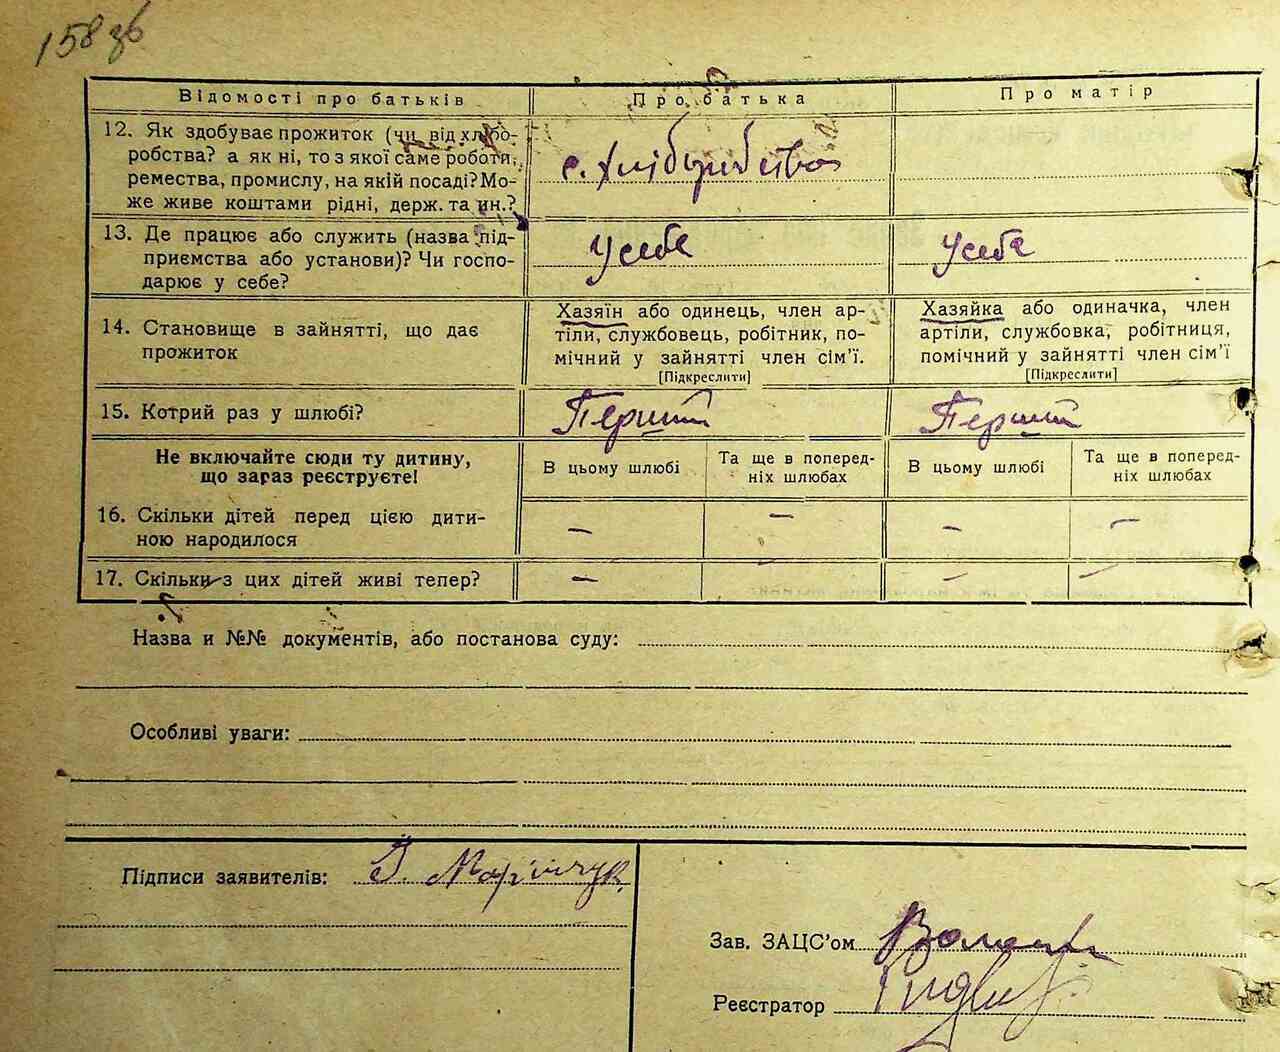 158 зв
Відомості про батьків Про батька Про матір
12. Як здобуває прожиток (чи від хлібо-
робства? а як ні, то з якої саме роботи,
ремества, промислу, на якій посаді? Мо-
же живе коштами рідні, держ. та ин.?
с. Хліборобство
13. Де працює або служить (назва під-
приємства або установи)? Чи госпо-
дарює у себе?
У себе У себе
14. Становище в зайнятті, що дає
прожиток
Хазяїн або одинець, член ар-
тіли, службовець, робітник, по-
мічний у зайнятті член сім’ї.
[Підкреслити]
Хазяйка або одиначка, член
артіли, службовка, робітниця,
помічний у зайнятті член сім’ї
[Підкреслити]
15. Котрий раз у шлюбі? Перший Перший
Не включайте сюди ту дитину,
що зараз реєструєте!
В цьому шлюбі
Та ще в поперед-
ніх шлюбах
В цьому шлюбі
Та ще в поперед-
ніх шлюбах
16. Скільки дітей перед цією дити-
ною народилося
— — — —
17. Скільки з цих дітей живі тепер? — — — —
Назва и №№ документів, або постанова суду:
Особливі уваги:
Підписи заявителів:
Зав. ЗАЦС’ом
Реєстратор